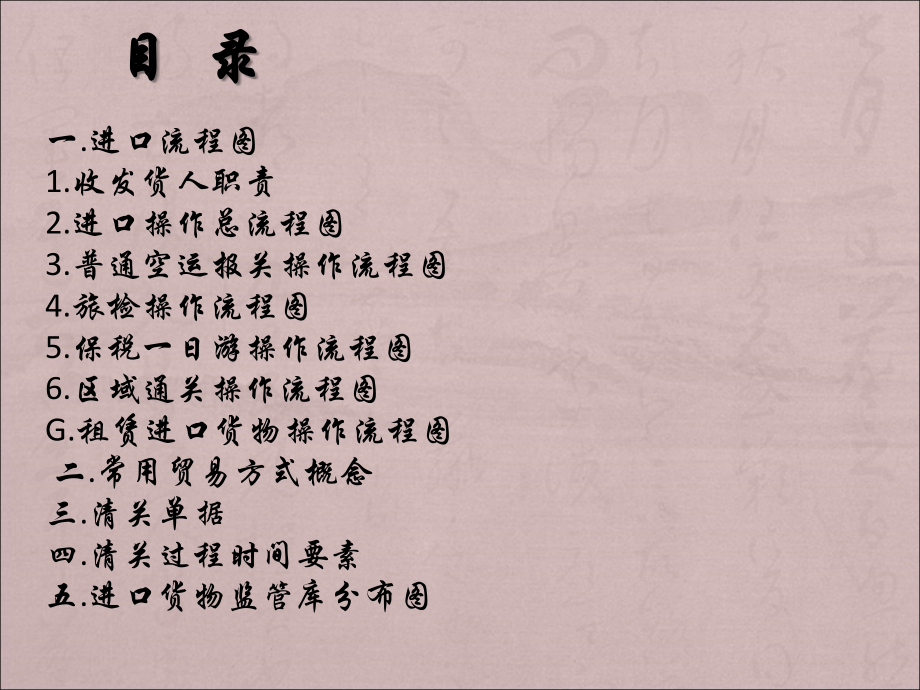 目 录
一.进口流程图
1.收发货人职责
2.进口操作总流程图
3.普通空运报关操作流程图
4.旅检操作流程图
5.保税一日游操作流程图
6.区域通关操作流程图
G.租赁进口货物操作流程图
二.常用贸易方式概念
三.清关单据
四.清关过程时间要素
五.进口货物监管库分布图